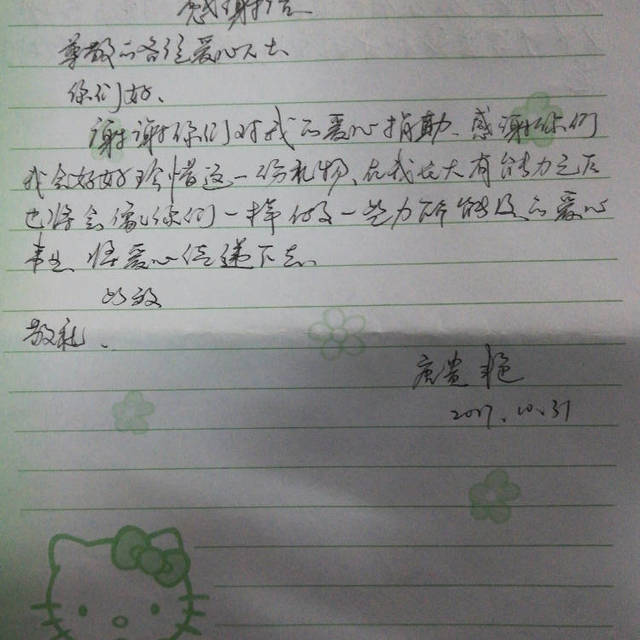 感谢信
尊敬的各位爱心人士、
你们好、
谢谢你们对我的爱心捐助、感谢你们
我会好好珍惜这一份礼物、在我长大有能力之后
也将会像你们一样做一些力所能及的爱心
事业、将爱心传递下去、
此致
敬礼、
唐贵艳
2017.10.31